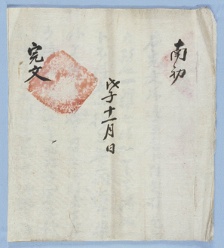 南初
戊子十一月日
完文